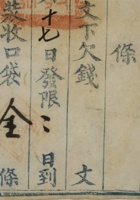 條
文下欠錢 文
十七日發限二日到
裝收口袋全條